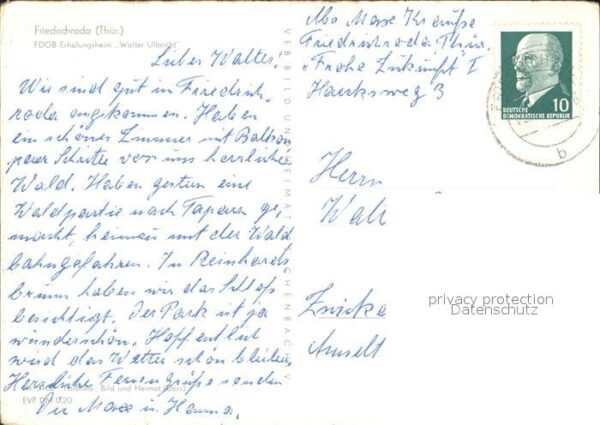 Friedrichroda (Thür.)
FDGB-Erholungsheim „Walter Ulbricht"
Lieber Walter,
Wir sind gut in Friedrich
roda angekommen. Haben
ein schönes Zimmer mit Balkon
paar Schritte vor uns herrlicher
Wald. Haben gestern eine
Waldpartie nach Tabarz ge,
macht, heimzu mit der Wald
bahn gefahren. In Reinhards
brunn haben wir das Schloß
besichtigt. Der Park ist ja
wunderschön. Hoffentlich
wird das Wetter schön bleiben
Herzliche Feriengrüße senden
Dir Maxe u. Hanna.
Bild und Heimat
EVP 0,20
VERLAG BILD UND HEIMAT REICHENBACH V
Abs Maxe Krauße
Friedrichroda Thür.
"Frohe Zukunft" I
Hauksweg 3
DEUTSCHE
DEMOKRATISCHE REPUBLIK
10
b
Herrn
Walt
Zwicka
Amselt
privacy protection
Datenschutz